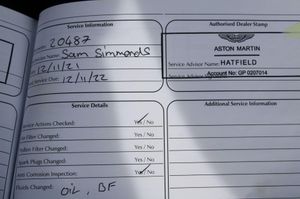 Service Information
Authorised Dealer Stamp
20487
Name: Sam Simmonds
ASTON MARTIN
12/11/21
Service Advisor Name: HATFIELD
Service Due: 12/11/22
Account No: GP 0207014
Service Details
Additional Service Information
Service Actions Checked: Yes/No
Filter Changed: Yes/No
Pollen Filter Changed: Yes/No
Spark Plugs Changed: Yes/No
Anti Corrosion Inspection: Yes/No
Fluids Changed: OIL, BF